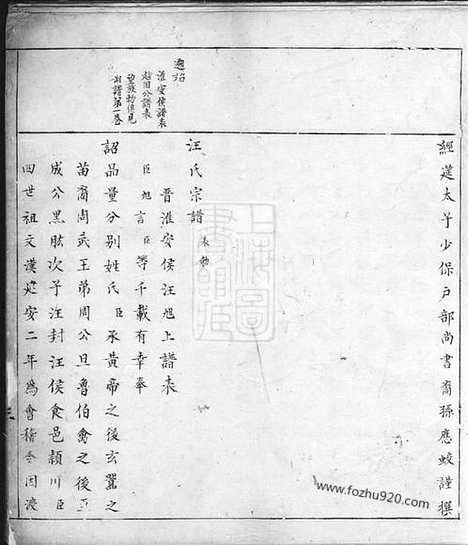 經筵太子少保戶部尚書裔孫應蛟謹撰
遵始
淮安侯譜表
越國公譜表
望族物俱見
前譜第一卷
汪氏宗譜 表勅
晉淮安侯汪旭上譜表
臣旭言臣等千載有幸奉
詔品量分別姓氏臣承黃帝之後玄囂之
苗裔周武王弟周公旦魯伯禽之後至
成公黑肱次子汪封汪侯食邑頴川臣
四世祖文漢建安二年為會稽令因渡
www.fozhu920.com